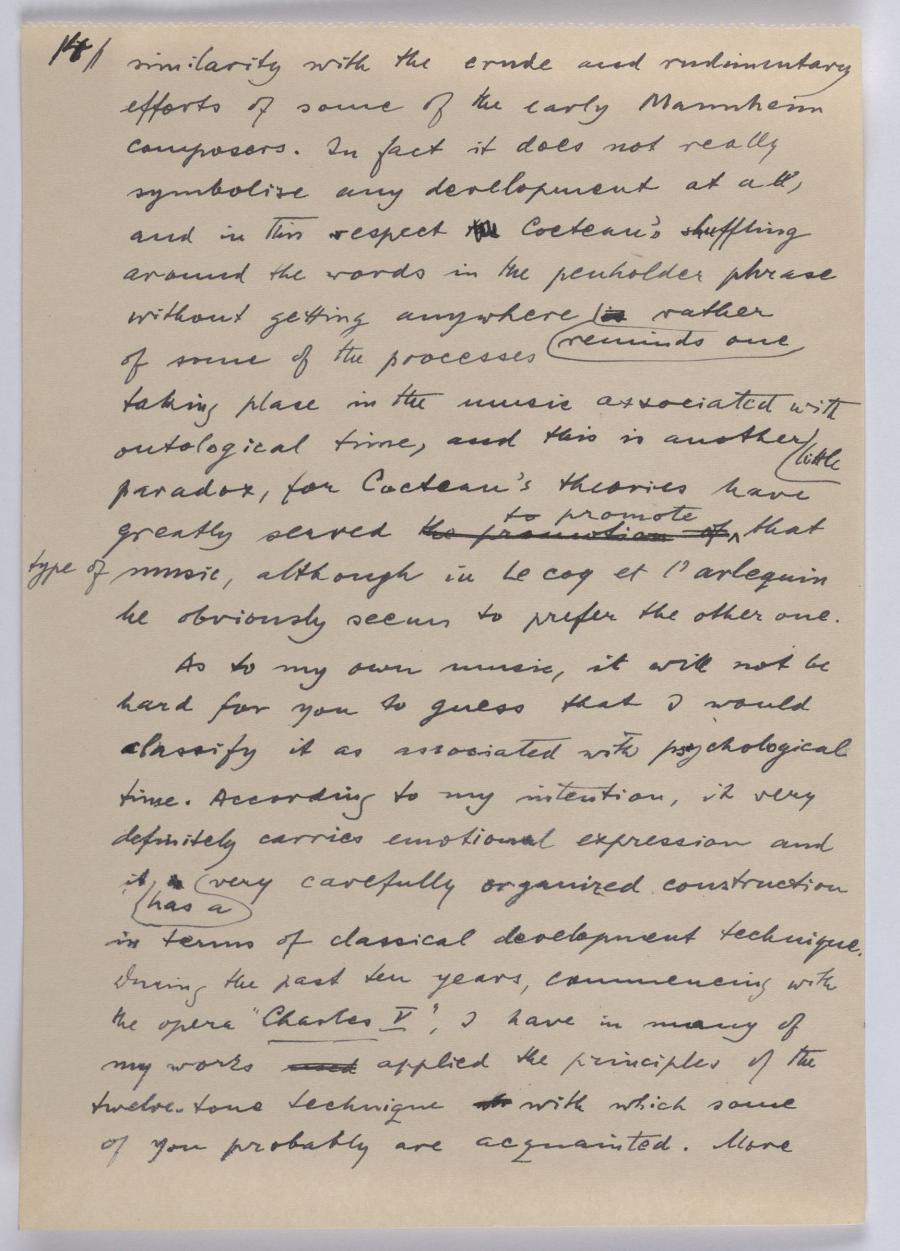 14/ similarity with the crude and rudimentary
efforts of some of the early Mannheim
composers. In fact it does not really
symbolise any development at all,
and in this respect Cocteau's shuffling
around the words in the penholder phrase
without getting anywhere is rather
reminds one
of some of the processes
taking place in the music associated with
ontological time, and this is another
little
paradox, for Cocteau's theories have
to promote
greatly served the promotion of that
type of music, although in Le coq et l'arlequin
he obviously seems to prefer the other one.
As to my own music, it will not be
hard for you to guess that I would
classify it as associated with psychological
time. According to my intention, it very
definitely carries emotional expression and
it is very carefully organized construction
has a
in terms of classical development technique.
During the past ten years, commencing with
the opera "Charles V", I have in many of
my works used applied the principles of the
twelve-tone technique with which some
of you probably are acquainted. More